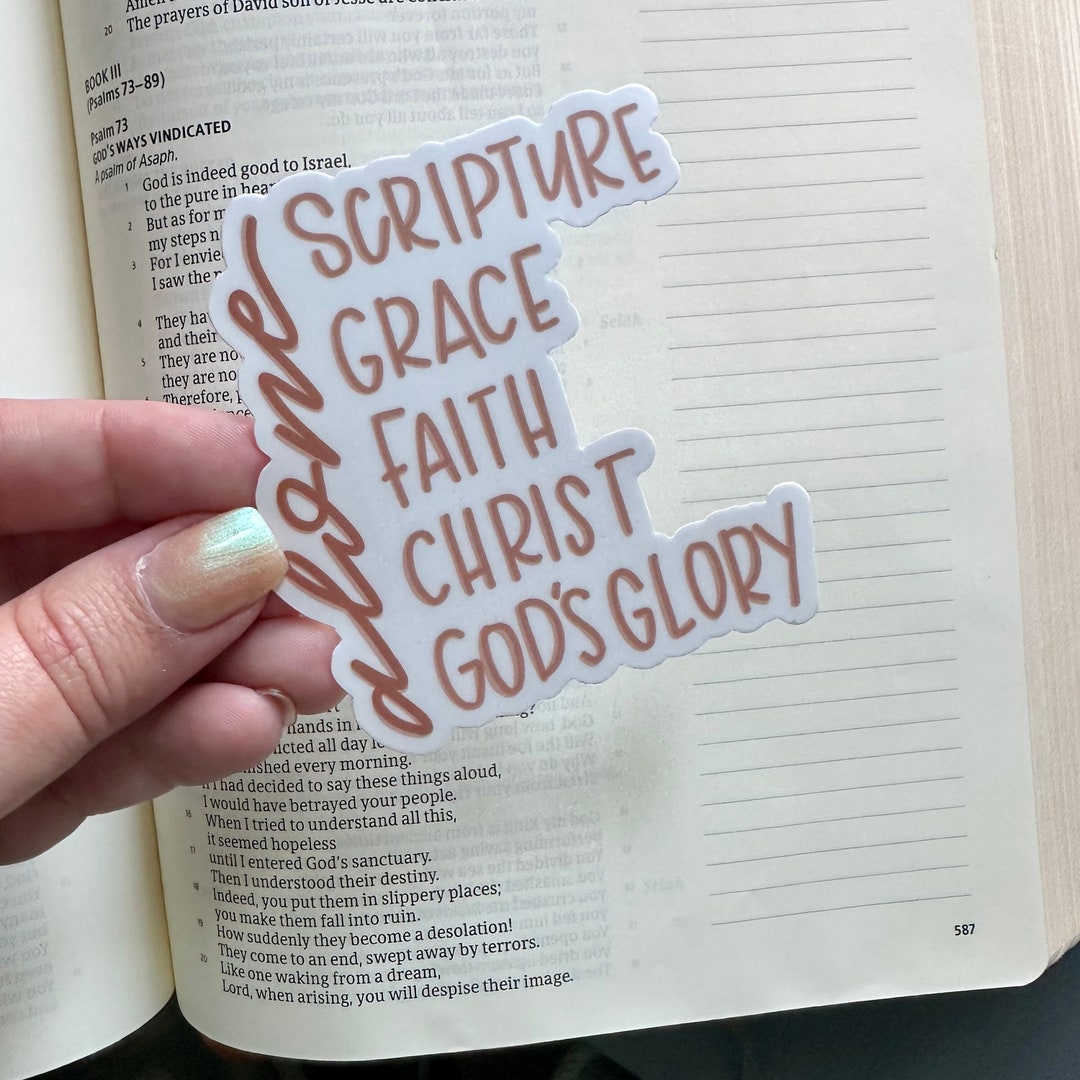 20 The prayers of David son of Jesse are
BOOK III
(Psalms 73–89)
Psalm 73
GOD'S WAYS VINDICATED
A psalm of Asaph.
1 God is indeed good to Israel,
to the pure in
2 But as for
my steps
3 For I
I saw the
4 They
and their
5 They are
they are
Therefore,
alone
SCRIPTURE
GRACE
FAITH
CHRIST
GOD'S GLORY
Selah
hands in
all day
every morning.
had decided to say these things aloud,
I would have betrayed your people.
16 When I tried to understand all this,
it seemed hopeless
17 until I entered God's sanctuary.
Then I understood their destiny.
18 Indeed, you put them in slippery places;
you make them fall into ruin.
19 How suddenly they become a desolation!
They come to an end, swept away by terrors.
20 Like one waking from a dream,
Lord, when arising, you will despise their image.
587